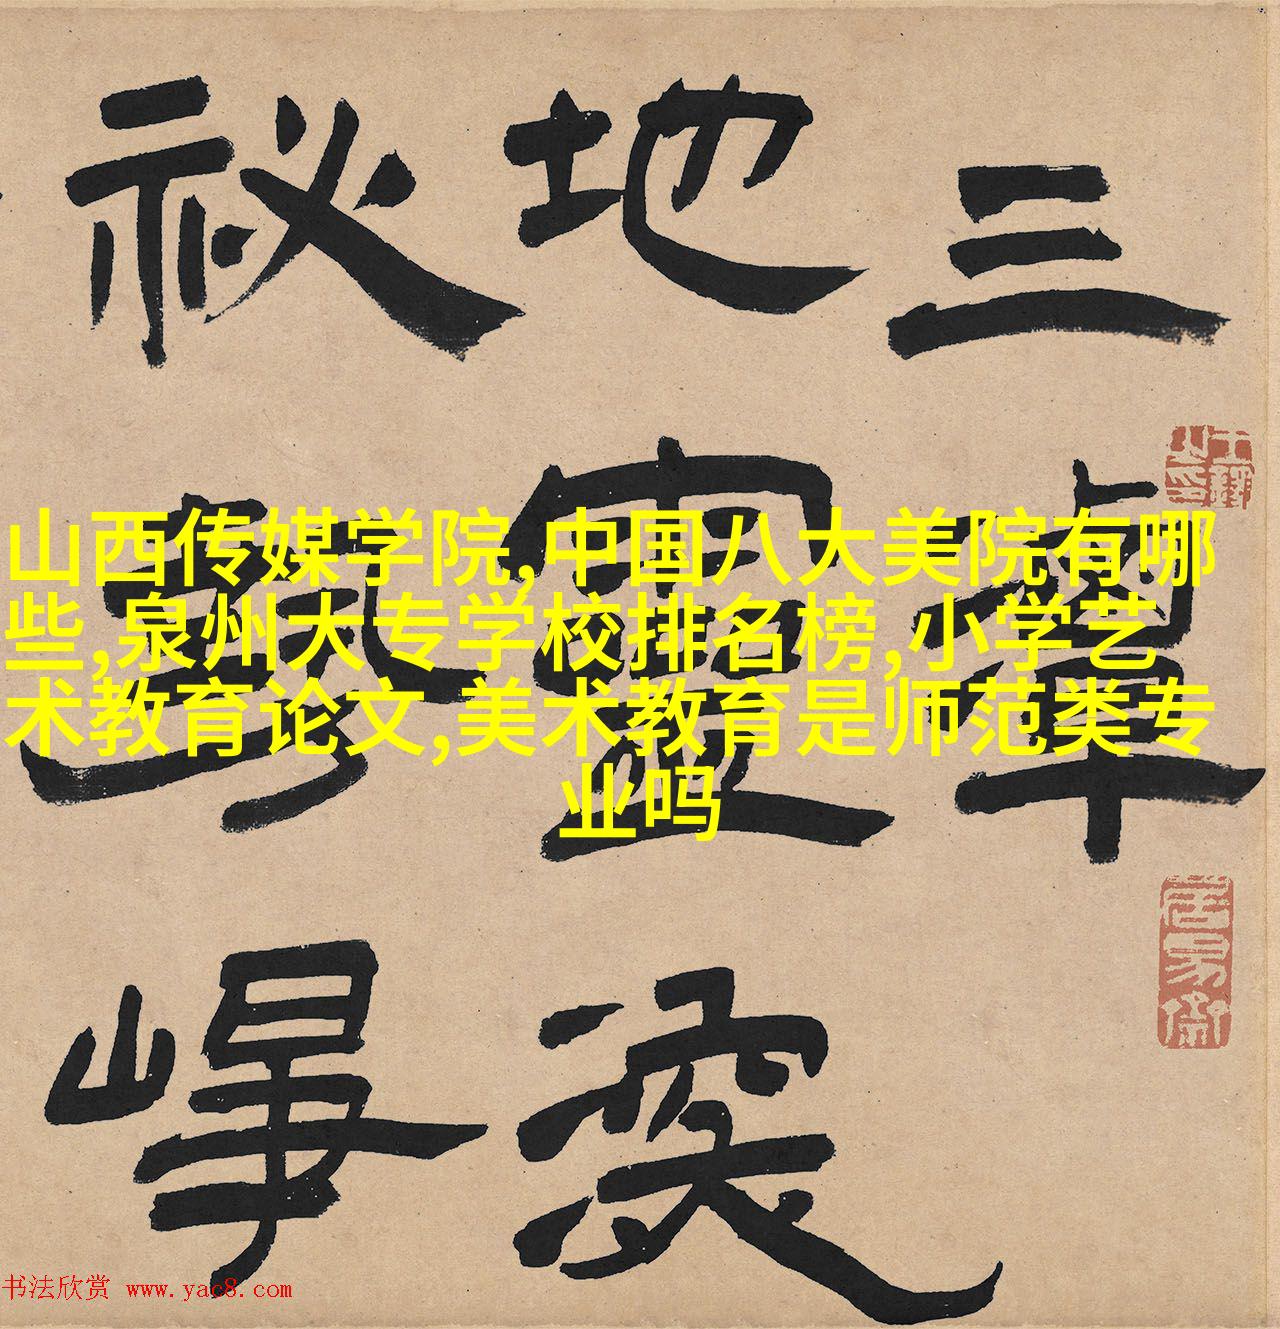 三
地靈
秘
山西传媒学院,中国八大美院有哪
些,泉州大专学校排名榜,小学艺
术教育论文,美术教育是师范类专
业吗
书法欣赏 www.yac8.com